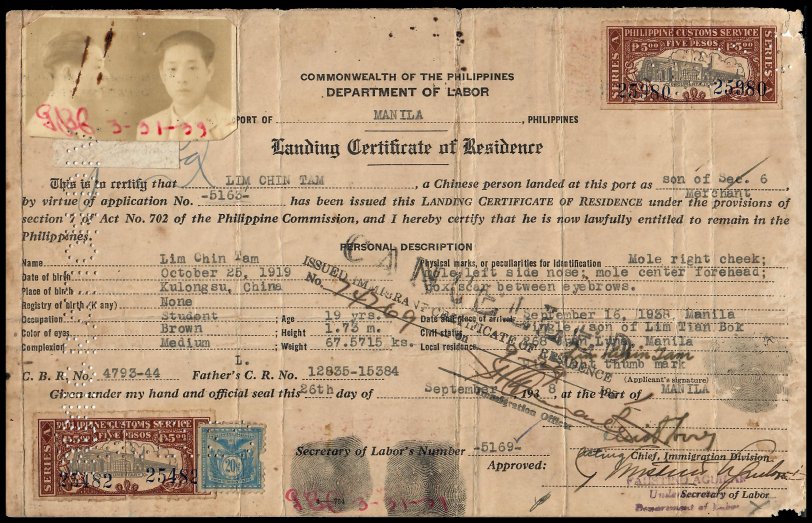 PHILIPPINE CUSTOMS SERVICE
₱5.00 FIVE PESOS ₱5.00
SERIES A SERIES A
25980 25980
3-31-39
COMMONWEALTH OF THE PHILIPPINES
DEPARTMENT OF LABOR
PORT OF MANILA, PHILIPPINES
Landing Certificate of Residence
This is to certify that LIM CHIN TAM, a Chinese person landed at this port as son of Sec. 6 Merchant
by virtue of application No. -5163- has been issued this LANDING CERTIFICATE OF RESIDENCE under the provisions of
section 7 of Act No. 702 of the Philippine Commission, and I hereby certify that he is now lawfully entitled to remain in the
Philippines.
PERSONAL DESCRIPTION
Name Lim Chin Tam Physical marks, or peculiarities for identification Mole right cheek;
Date of birth October 25, 1919 mole left side nose; mole center forehead;
Place of birth Kulongsu, China pox scar between eyebrows.
Registry of birth (if any) None
Occupation Student Age 19 yrs. Date and place of arrival September 16, 1938, Manila
Color of eyes Brown Height 1.73 m. Civil status Single; son of Lim Tian Bok
Complexion Medium Weight 67.5715 ks. Local residence 268 Juan Luna, Manila
CANCELLED
ISSUED IMMIGRANT CERTIFICATE OF RESIDENCE
No. 74769
Immigration Officer
Lim Chin Tam
thumb mark
(Applicant's signature)
L.
C. B. R. No. 4793-44 Father's C. R. No. 12835-15384
Given under my hand and official seal this 26th day of September, 1938, at the Port of MANILA
PHILIPPINE CUSTOMS SERVICE
₱5.00 FIVE PESOS ₱5.00
SERIES A
25482 25482
20
Secretary of Labor's Number -5169-
Approved:
Acting Chief, Immigration Division
Undersecretary of Labor
Department of Labor
3-31-39